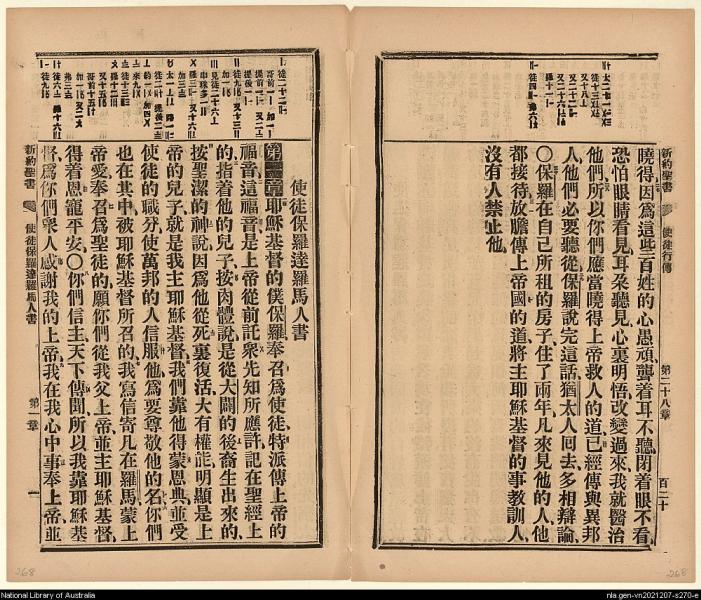 新約聖書
使徒行傳
第二十八章
百二十
曉得、因爲這些百姓的心愚頑、聾着耳不聽、閉着眼不看、
恐怕眼睛看見、耳朶聽見、心裏明悟、改變過來、我就醫治
他們、所以你們應當曉得上帝救人的道、已經傳與異邦
人、他們必要聽從、保羅說完這話、猶太人回去、多相辯論、
〇保羅在自己所租的房子、住了兩年、凡來見他的人、他
都接待、放膽傳上帝國的道、將主耶穌基督的事敎訓人、
沒有人禁止他、
使徒保羅達羅馬人書
第一章耶穌基督的僕保羅、奉召爲使徒、特派傳上帝的
福音、這福音是上帝從前託衆先知所應許、記在聖經上
的、指着他的兒子、按肉體說、是從大闢的後裔生出來的、
按聖潔的神說、因爲他從死裏復活、大有權能、明顯是上
帝的兒子、就是我主耶穌基督、我們靠他得蒙恩典、並受
使徒的職分、使萬邦的人信服他、爲要尊敬他的名、你們
也在其中、被耶穌基督所召的、我寫信寄凡在羅馬、蒙上
帝愛、奉召爲聖徒的、願你們從我父上帝並主耶穌基督、
得着恩寵平安、〇你們信主、天下傳聞、所以我靠耶穌基
督、爲你們衆人感謝我的上帝、我在我心中事奉上帝、並
新約聖書
使徒保羅達羅馬人書
第一章
一
268
268
National Library of Australia
nla.gen-vn2021207-s270-e